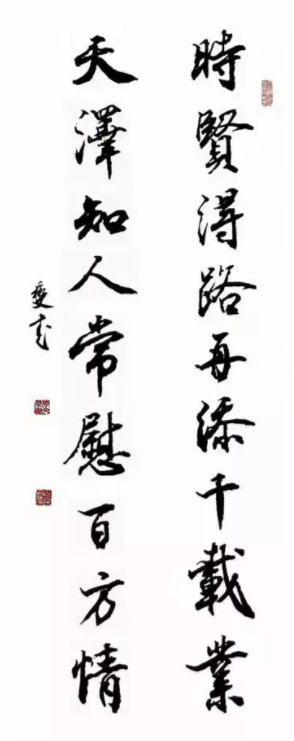 時賢得路再添千載業
天澤知人常慰百方情